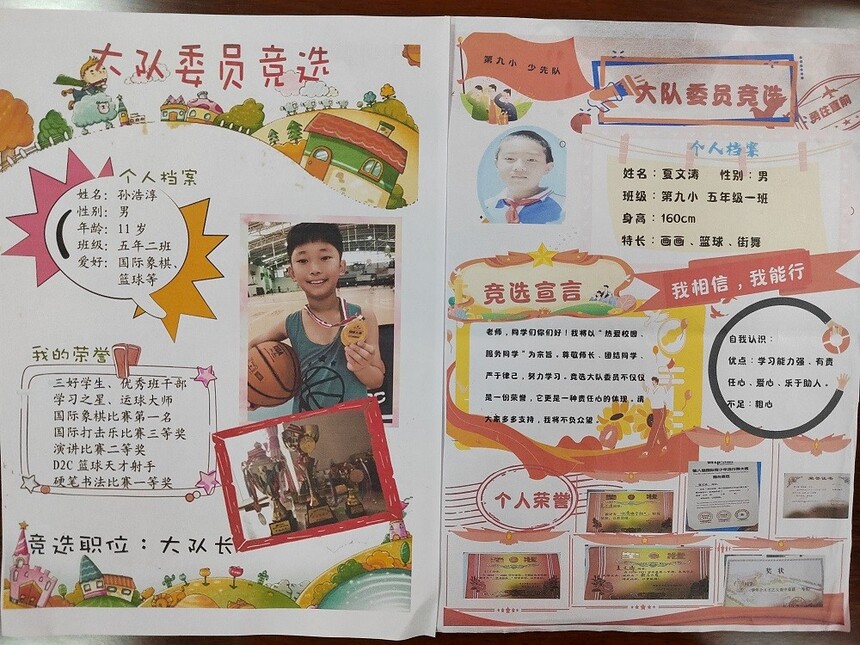 大队委员竞选
个人档案
姓名：孙浩淳
性别：男
年龄：11岁
班级：五年二班
爱好：国际象棋、
篮球等
我的荣誉
三好学生、优秀班干部
学习之星、运球大师
国际象棋比赛第一名
国际打击乐比赛三等奖
演讲比赛二等奖
D2C 篮球天才射手
硬笔书法比赛一等奖
竞选职位：大队长
第九小 少先队
大队委员竞选
勇往直前
个人档案
姓名：夏文涛 性别：男
班级：第九小 五年级一班
身高：160cm
特长：画画、篮球、街舞
竞选宣言
我相信，我能行
老师，同学们你们好！我将以“热爱校园、
服务同学”为宗旨。尊敬师长、团结同学、
严于律己，努力学习。竞选大队委员不仅仅
是一份荣誉，它更是一种责任心的体现。请
大家多多支持，我将不负众望。
自我认识：
优点：学习能力强、有责
任心、爱心、乐于助人。
不足：粗心
个人荣誉
荣誉证书
奖状